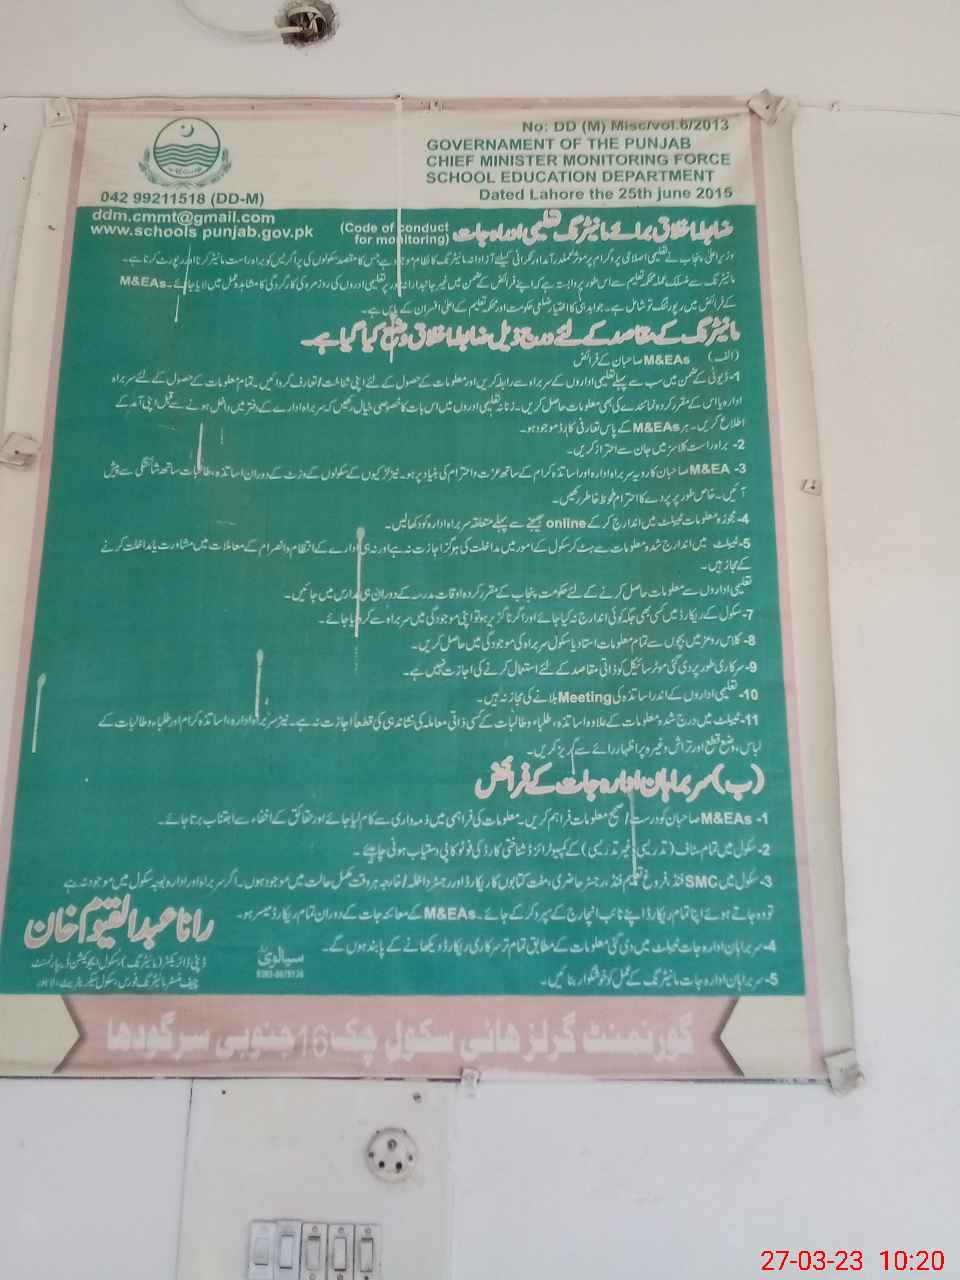 No: DD (M) Misc/vol.6/2013
GOVERNAMENT OF THE PUNJAB
CHIEF MINISTER MONITORING FORCE
SCHOOL EDUCATION DEPARTMENT
Dated Lahore the 25th june 2015
042 99211518 (DD-M)
ddm.cmmt@gmail.com
www.schools punjab.gov.pk
ضابطہ اخلاق برائے مانیٹرنگ تعلیمی ادارہ جات (Code of conduct for monitoring)
وزیراعلیٰ پنجاب نے تعلیمی اصلاحی پروگرام پر موثر عملدرآمد اور نگرانی کیلئے آزادانہ مانیٹرنگ کا نظام موجود ہے جس کا مقصد سکولوں کی پراگریس کو براہ راست مانیٹر کرنا اور رپورٹ کرنا ہے۔
مانیٹرنگ سے منسلک عملہ محکمہ تعلیم سے اس طور پر وابستہ ہے کہ اپنے فرائض کے ضمن میں غیر جانبدارانہ طور پر تعلیمی اداروں کی روزمرہ کی کارکردگی کا مشاہدہ عمل میں لایا جائے۔ M&EAs
کے فرائض میں رپورٹنگ تو شامل ہے۔ جوابدہی کا اختیار ضلعی حکومت اور محکمہ تعلیم کے اعلیٰ افسران کے پاس ہے۔
مانیٹرنگ کے مقاصد کے لئے درج ذیل ضابطہ اخلاق وضع کیا گیا ہے۔
(الف) M&EAs صاحبان کے فرائض
1- ڈیوٹی کے ضمن میں سب سے پہلے تعلیمی اداروں کے سربراہ سے رابطہ کریں اور معلومات کے حصول کے لئے اپنی شناخت/تعارف کروائیں۔ تمام معلومات کے حصول کے لئے سربراہ
ادارہ یا اس کے مقرر کردہ نمائندے کی بھی معلومات حاصل کریں۔ زنانہ تعلیمی اداروں میں اس بات کا خصوصی خیال رکھیں کہ سربراہ ادارے کے دفتر میں داخل ہونے سے قبل اپنی آمد کے
اطلاع کریں۔ ہر M&EAs کے پاس تعارفی کارڈ موجود ہو۔
2- براہ راست کلاسز میں جان سے احتراز کریں۔
3- M&EA صاحبان کا رویہ سربراہ ادارہ اور اساتذہ کرام کے ساتھ عزت واحترام کی بنیاد پر ہو۔ نیز لڑکیوں کے سکولوں کے وزٹ کے دوران اساتذہ، طالبات ساتھ شائستگی سے پیش
آئیں۔ خاص طور پر پردے کا احترام ملحوظ خاطر رکھیں۔
4- مجوزہ معلومات ٹیبلٹ میں اندارج کر کے online بھیجنے سے پہلے متعلقہ سربراہ ادارہ کو دکھا لیں۔
5- ٹیبلٹ میں اندارج شدہ معلومات سے ہٹ کر سکول کے امور میں مداخلت کی ہرگز اجازت نہ ہے اور نہ ہی ادارے کے انتظام و انصرام کے معاملات میں مشاورت یا مداخلت کرنے
کے مجاز ہیں۔
تعلیمی اداروں سے معلومات حاصل کرنے کے لئے حکومت پنجاب کے مقرر کردہ اوقات مدرسہ کے دوران ہی مدارس میں جائیں۔
7- سکول کے ریکارڈ میں کسی بھی جگہ کوئی اندارج نہ کیا جائے اور اگر ناگزیر ہو تو اپنی موجودگی میں سربراہ سے کروایا جائے۔
8- کلاس رومز میں بچوں سے تمام معلومات استاد یا سکول سربراہ کی موجودگی میں حاصل کریں۔
9- سرکاری طور پر دی گئی موٹر سائیکل کو ذاتی مقاصد کے لئے استعمال کرنے کی اجازت نہیں ہے۔
10- تعلیمی اداروں کے اندر اساتذہ کی Meeting بلانے کی مجاز نہ ہیں۔
11- ٹیبلٹ میں درج شدہ معلومات کے علاوہ اساتذہ، طلباء و طالبات کے کسی ذاتی معاملہ کی نشاندہی کی قطعاً اجازت نہ ہے۔ نیز سربراہ ادارہ، اساتذہ کرام اور طلباء و طالبات کے
لباس، وضع قطع اور تراش وغیرہ پر اظہار رائے سے گریز کریں۔
(ب) سربراہان ادارہ جات کے فرائض
1- M&EAs صاحبان کو درست/صحیح معلومات فراہم کریں۔ معلومات کی فراہمی میں ذمہ داری سے کام لیا جائے اور حقائق کے اخفاء سے اجتناب برتا جائے۔
2- سکول میں تمام سٹاف (تدریسی، غیر تدریسی) کے کمپیوٹرائزڈ شناختی کارڈ کی فوٹو کاپی دستیاب ہونی چاہیئے۔
3- سکول میں SMC فنڈ، فروغ تعلیم فنڈ، رجسٹر حاضری، مفت کتابوں کا ریکارڈ اور رجسٹر داخلہ/خارجہ ہر وقت مکمل حالت میں موجود ہوں۔ اگر سربراہ اور ادارہ بوجہ سکول میں موجود نہ ہے
تو وہ جاتے ہوئے اپنا تمام ریکارڈ اپنے نائب انچارج کے سپرد کر کے جائے۔ M&EAs کے معائنہ جات کے دوران تمام ریکارڈ میسر ہو۔
4- سربراہان ادارہ جات ٹیبلٹ میں دی گئی معلومات کے مطابق تمام تر سرکاری ریکارڈ دیکھانے کے پابند ہوں گے۔
5- سربراہان ادارہ جات مانیٹرنگ کے عمل کو خوشگوار بنائیں۔
رانا عبدالقیوم خان
ڈپٹی ڈائریکٹر (مانیٹرنگ)، سکول ایجوکیشن ڈیپارٹمنٹ
چیف منسٹر مانیٹرنگ فورس، سکول سیکرٹریٹ، لاہور
سیالوی
گورنمنٹ گرلز ہائی سکول چک 16 جنوبی سرگودھا
27-03-23 10:20